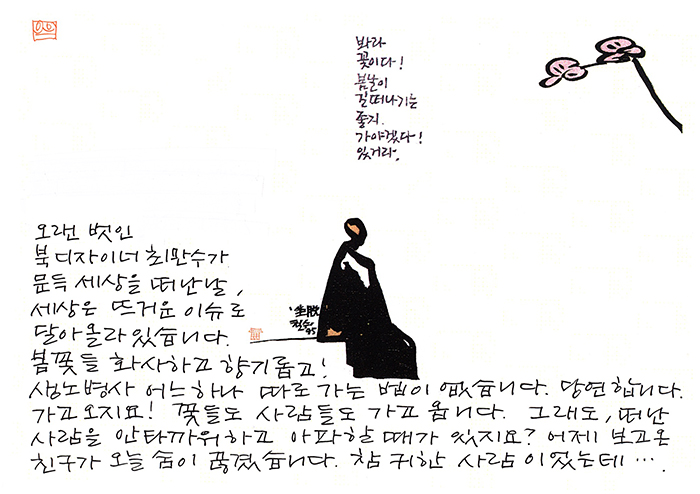 봐라
꽃이다!
봄날이
길떠나기는
좋지.
가야겠다!
있거라.
오랜 벗인
북디자이너 최만수가
문득 세상을 떠난날,
세상은 뜨거운 이슈로
달아올라있습니다.
봄꽃들 화사하고 향기롭고!
생노병사 어느하나 따로 가는 법이 없습니다. 당연합니다.
가고 오지요! 꽃들도 사람들도 가고 옵니다. 그래도, 떠난
사람을 안타까워하고 아파할 때가 있지요? 어제 보고온
친구가 오늘 숨이 끊겼습니다. 참 귀한 사람이었는데….